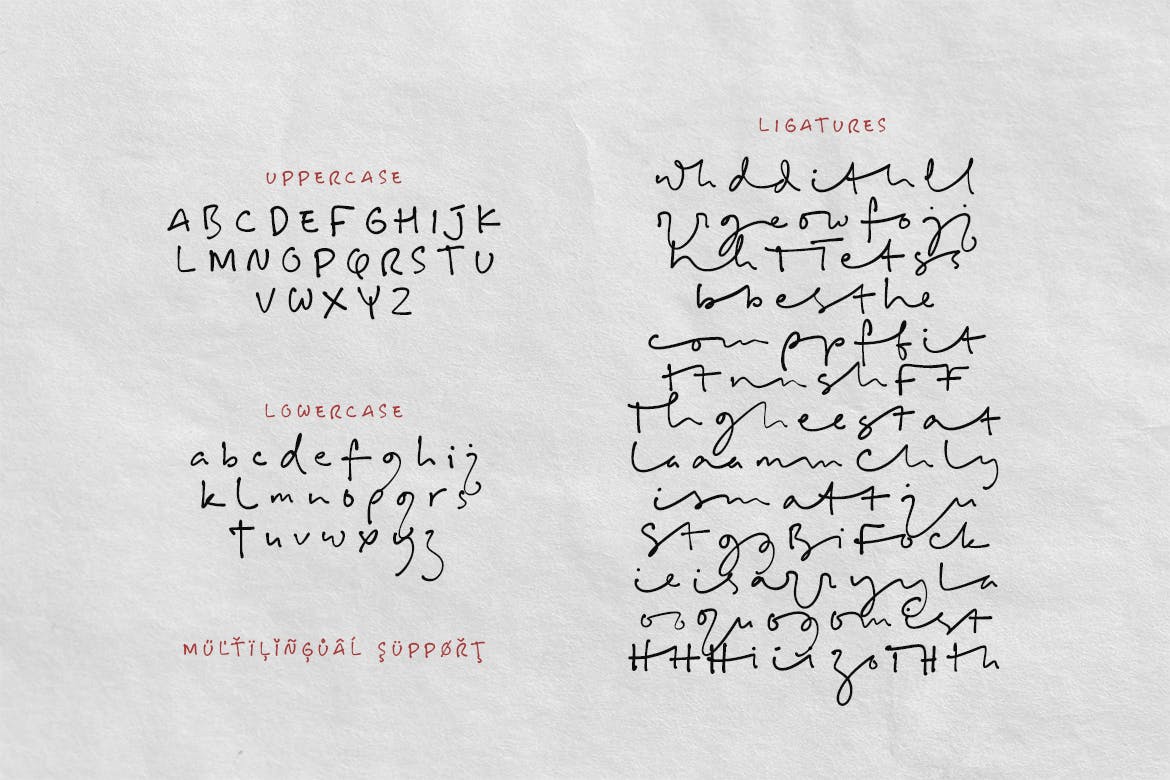 UPPERCASE
A B C D E F G H I J K
L M N O P Q R S T U
V W X Y Z
LOWERCASE
a b c d e f g h i j
k l m n o p q r s
t u v w x y z
MÜĽŤÏĻÏÑĢŮÂĹ ŞÜPPØŘŢ
LIGATURES
wh dd it h ll
rr ge ow fo jj
hh TT et ss
bb es the
com pp ff it
tt nn sh FF
Th gh ee st at
la aa mm ch ly
is m att j u
St gg Bi Fo ck
ie is ar ry yy La
oo qu og om est
HH Hi in zo TH th